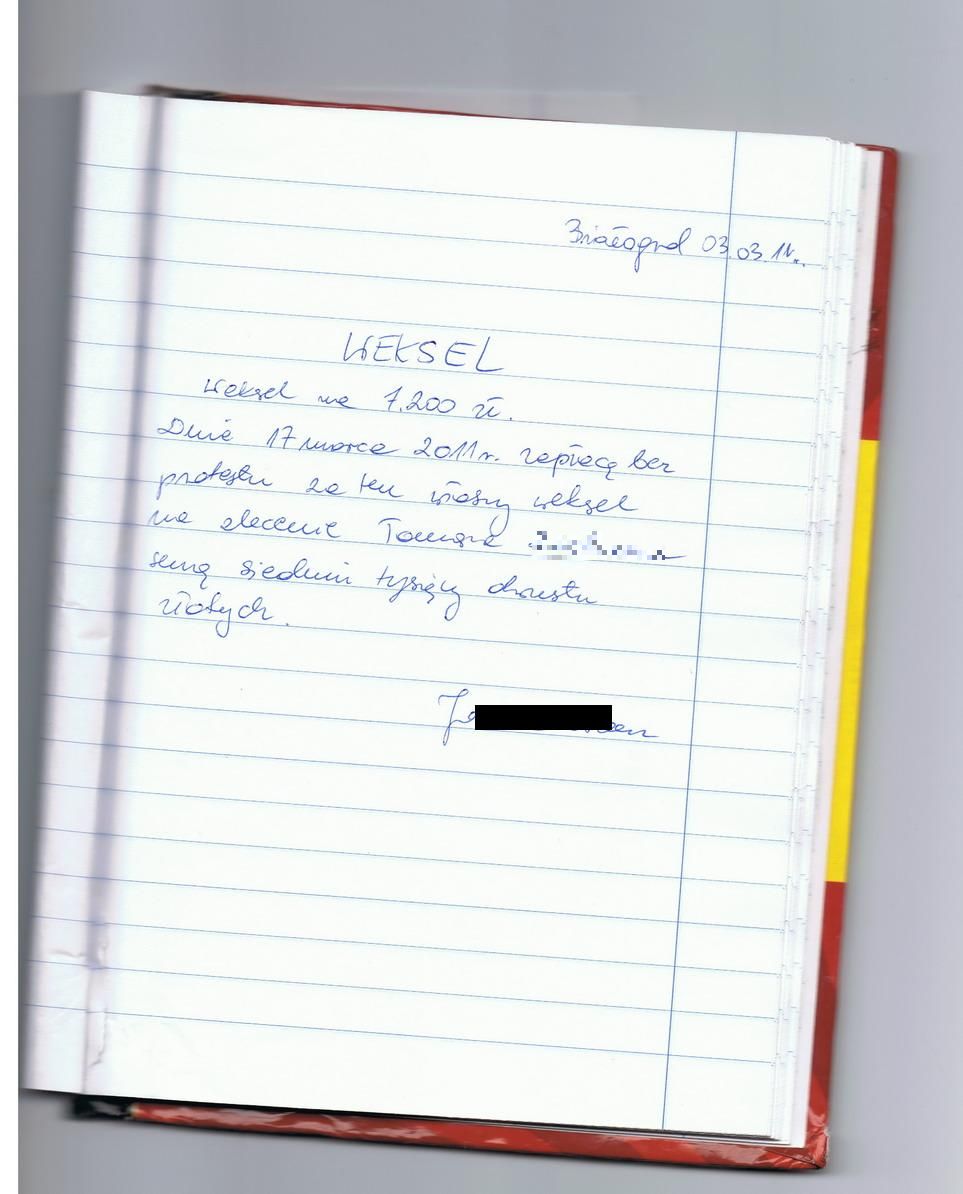 Białogard 03.03.11r.
WEKSEL
Weksel na 7.200 zł.
Dnia 17 marca 2011r. zapłacę bez
protestu za ten własny weksel
na zlecenie Tomasza
sumę siedmiu tysięcy dwustu
złotych.